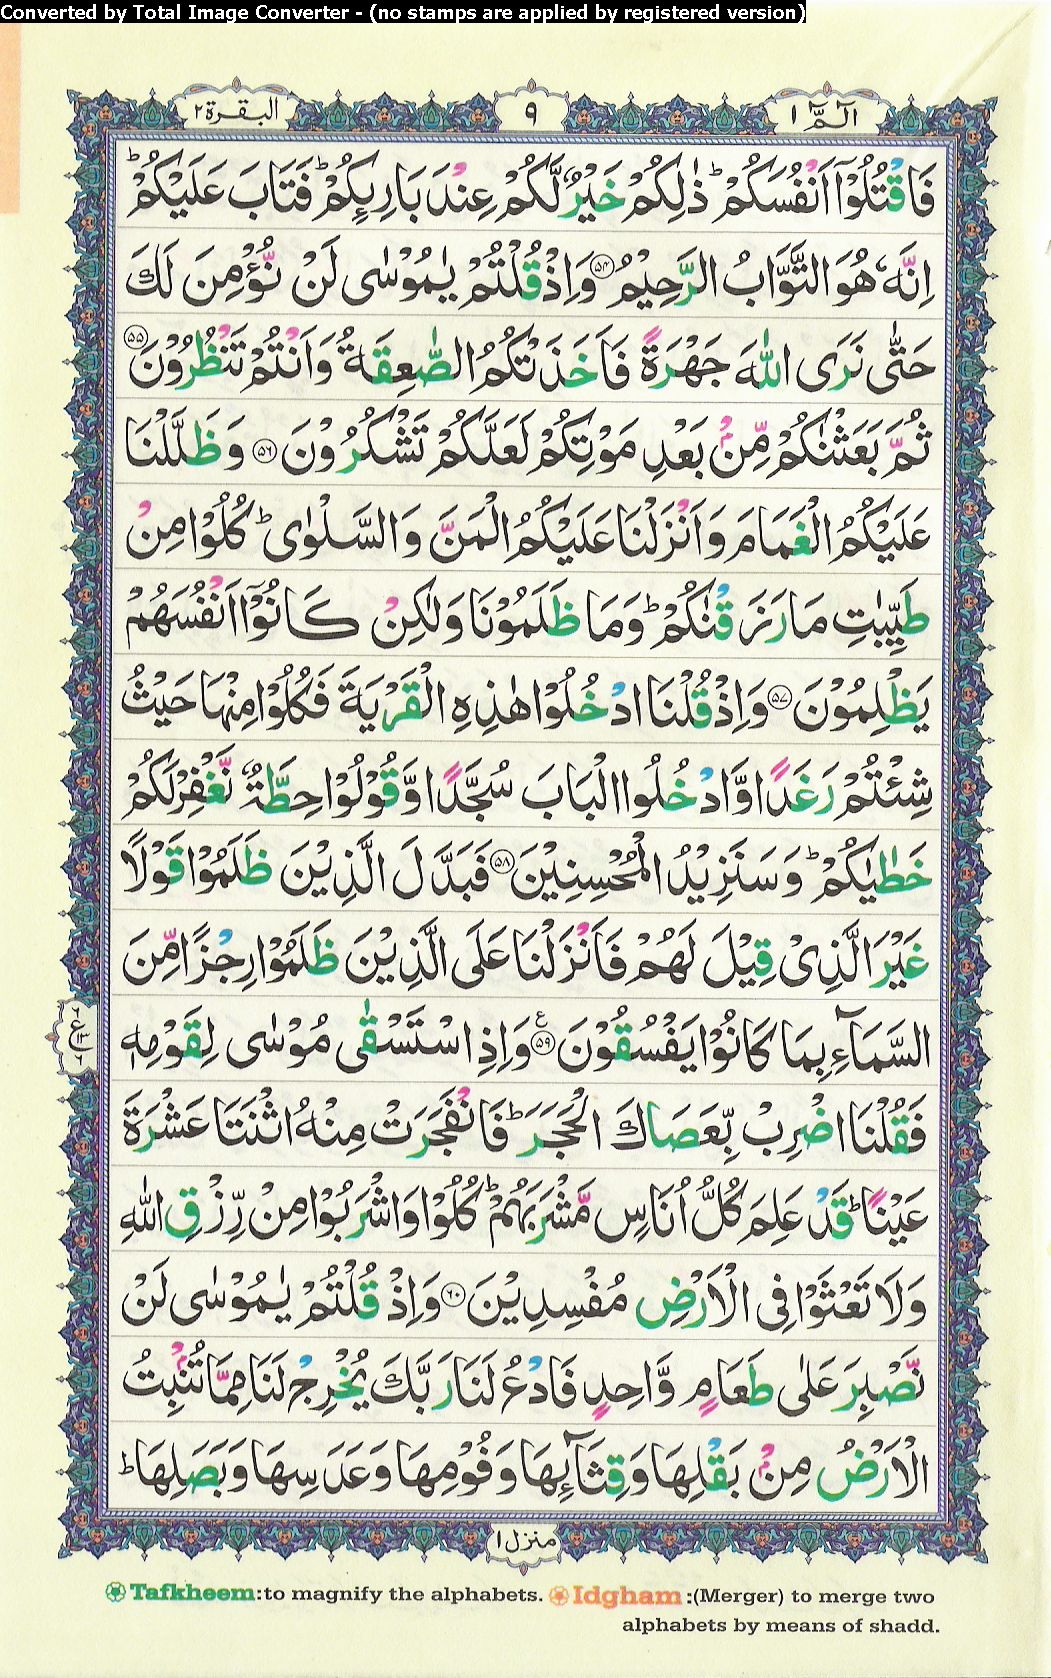 Converted by Total Image Converter - (no stamps are applied by registered version)
الٓمّٓ ١
٩
البقرة ٢
فَاقْتُلُوْۤا اَنْفُسَكُمْ ؕ ذٰلِكُمْ خَيْرٌ لَّكُمْ عِنْدَ بَارِىِٕكُمْ ؕ فَتَابَ عَلَيْكُمْ ؕ
اِنَّهٗ هُوَ التَّوَّابُ الرَّحِيْمُ ۝۵۴ وَ اِذْ قُلْتُمْ يٰمُوْسٰى لَنْ نُّؤْمِنَ لَكَ
حَتّٰى نَرَى اللّٰهَ جَهْرَةً فَاَخَذَتْكُمُ الصّٰعِقَةُ وَ اَنْتُمْ تَنْظُرُوْنَ ۝۵۵
ثُمَّ بَعَثْنٰكُمْ مِّنْۢ بَعْدِ مَوْتِكُمْ لَعَلَّكُمْ تَشْكُرُوْنَ ۝۵۶ وَ ظَلَّلْنَا
عَلَيْكُمُ الْغَمَامَ وَ اَنْزَلْنَا عَلَيْكُمُ الْمَنَّ وَ السَّلْوٰى ؕ كُلُوْا مِنْ
طَيِّبٰتِ مَا رَزَقْنٰكُمْ ؕ وَ مَا ظَلَمُوْنَا وَ لٰكِنْ كَانُوْۤا اَنْفُسَهُمْ
يَظْلِمُوْنَ ۝۵۷ وَ اِذْ قُلْنَا ادْخُلُوْا هٰذِهِ الْقَرْيَةَ فَكُلُوْا مِنْهَا حَيْثُ
شِئْتُمْ رَغَدًا وَّ ادْخُلُوا الْبَابَ سُجَّدًا وَّ قُوْلُوْا حِطَّةٌ نَّغْفِرْ لَكُمْ
خَطٰيٰكُمْ ؕ وَ سَنَزِيْدُ الْمُحْسِنِيْنَ ۝۵۸ فَبَدَّلَ الَّذِيْنَ ظَلَمُوْا قَوْلًا
غَيْرَ الَّذِىْ قِيْلَ لَهُمْ فَاَنْزَلْنَا عَلَى الَّذِيْنَ ظَلَمُوْا رِجْزًا مِّنَ
السَّمَآءِ بِمَا كَانُوْا يَفْسُقُوْنَ ۝۵۹ ع وَ اِذِ اسْتَسْقٰى مُوْسٰى لِقَوْمِهٖ
فَقُلْنَا اضْرِبْ بِّعَصَاكَ الْحَجَرَ ؕ فَانْفَجَرَتْ مِنْهُ اثْنَتَا عَشْرَةَ
عَيْنًا ؕ قَدْ عَلِمَ كُلُّ اُنَاسٍ مَّشْرَبَهُمْ ؕ كُلُوْا وَ اشْرَبُوْا مِنْ رِّزْقِ اللّٰهِ
وَ لَا تَعْثَوْا فِى الْاَرْضِ مُفْسِدِيْنَ ۝۶۰ وَ اِذْ قُلْتُمْ يٰمُوْسٰى لَنْ
نَّصْبِرَ عَلٰى طَعَامٍ وَّاحِدٍ فَادْعُ لَنَا رَبَّكَ يُخْرِجْ لَنَا مِمَّا تُنْۢبِتُ
الْاَرْضُ مِنْۢ بَقْلِهَا وَ قِثَّآىِٕهَا وَ فُوْمِهَا وَ عَدَسِهَا وَ بَصَلِهَا ؕ
منزل ١
Tafkheem:to magnify the alphabets. Idgham :(Merger) to merge two
alphabets by means of shadd.